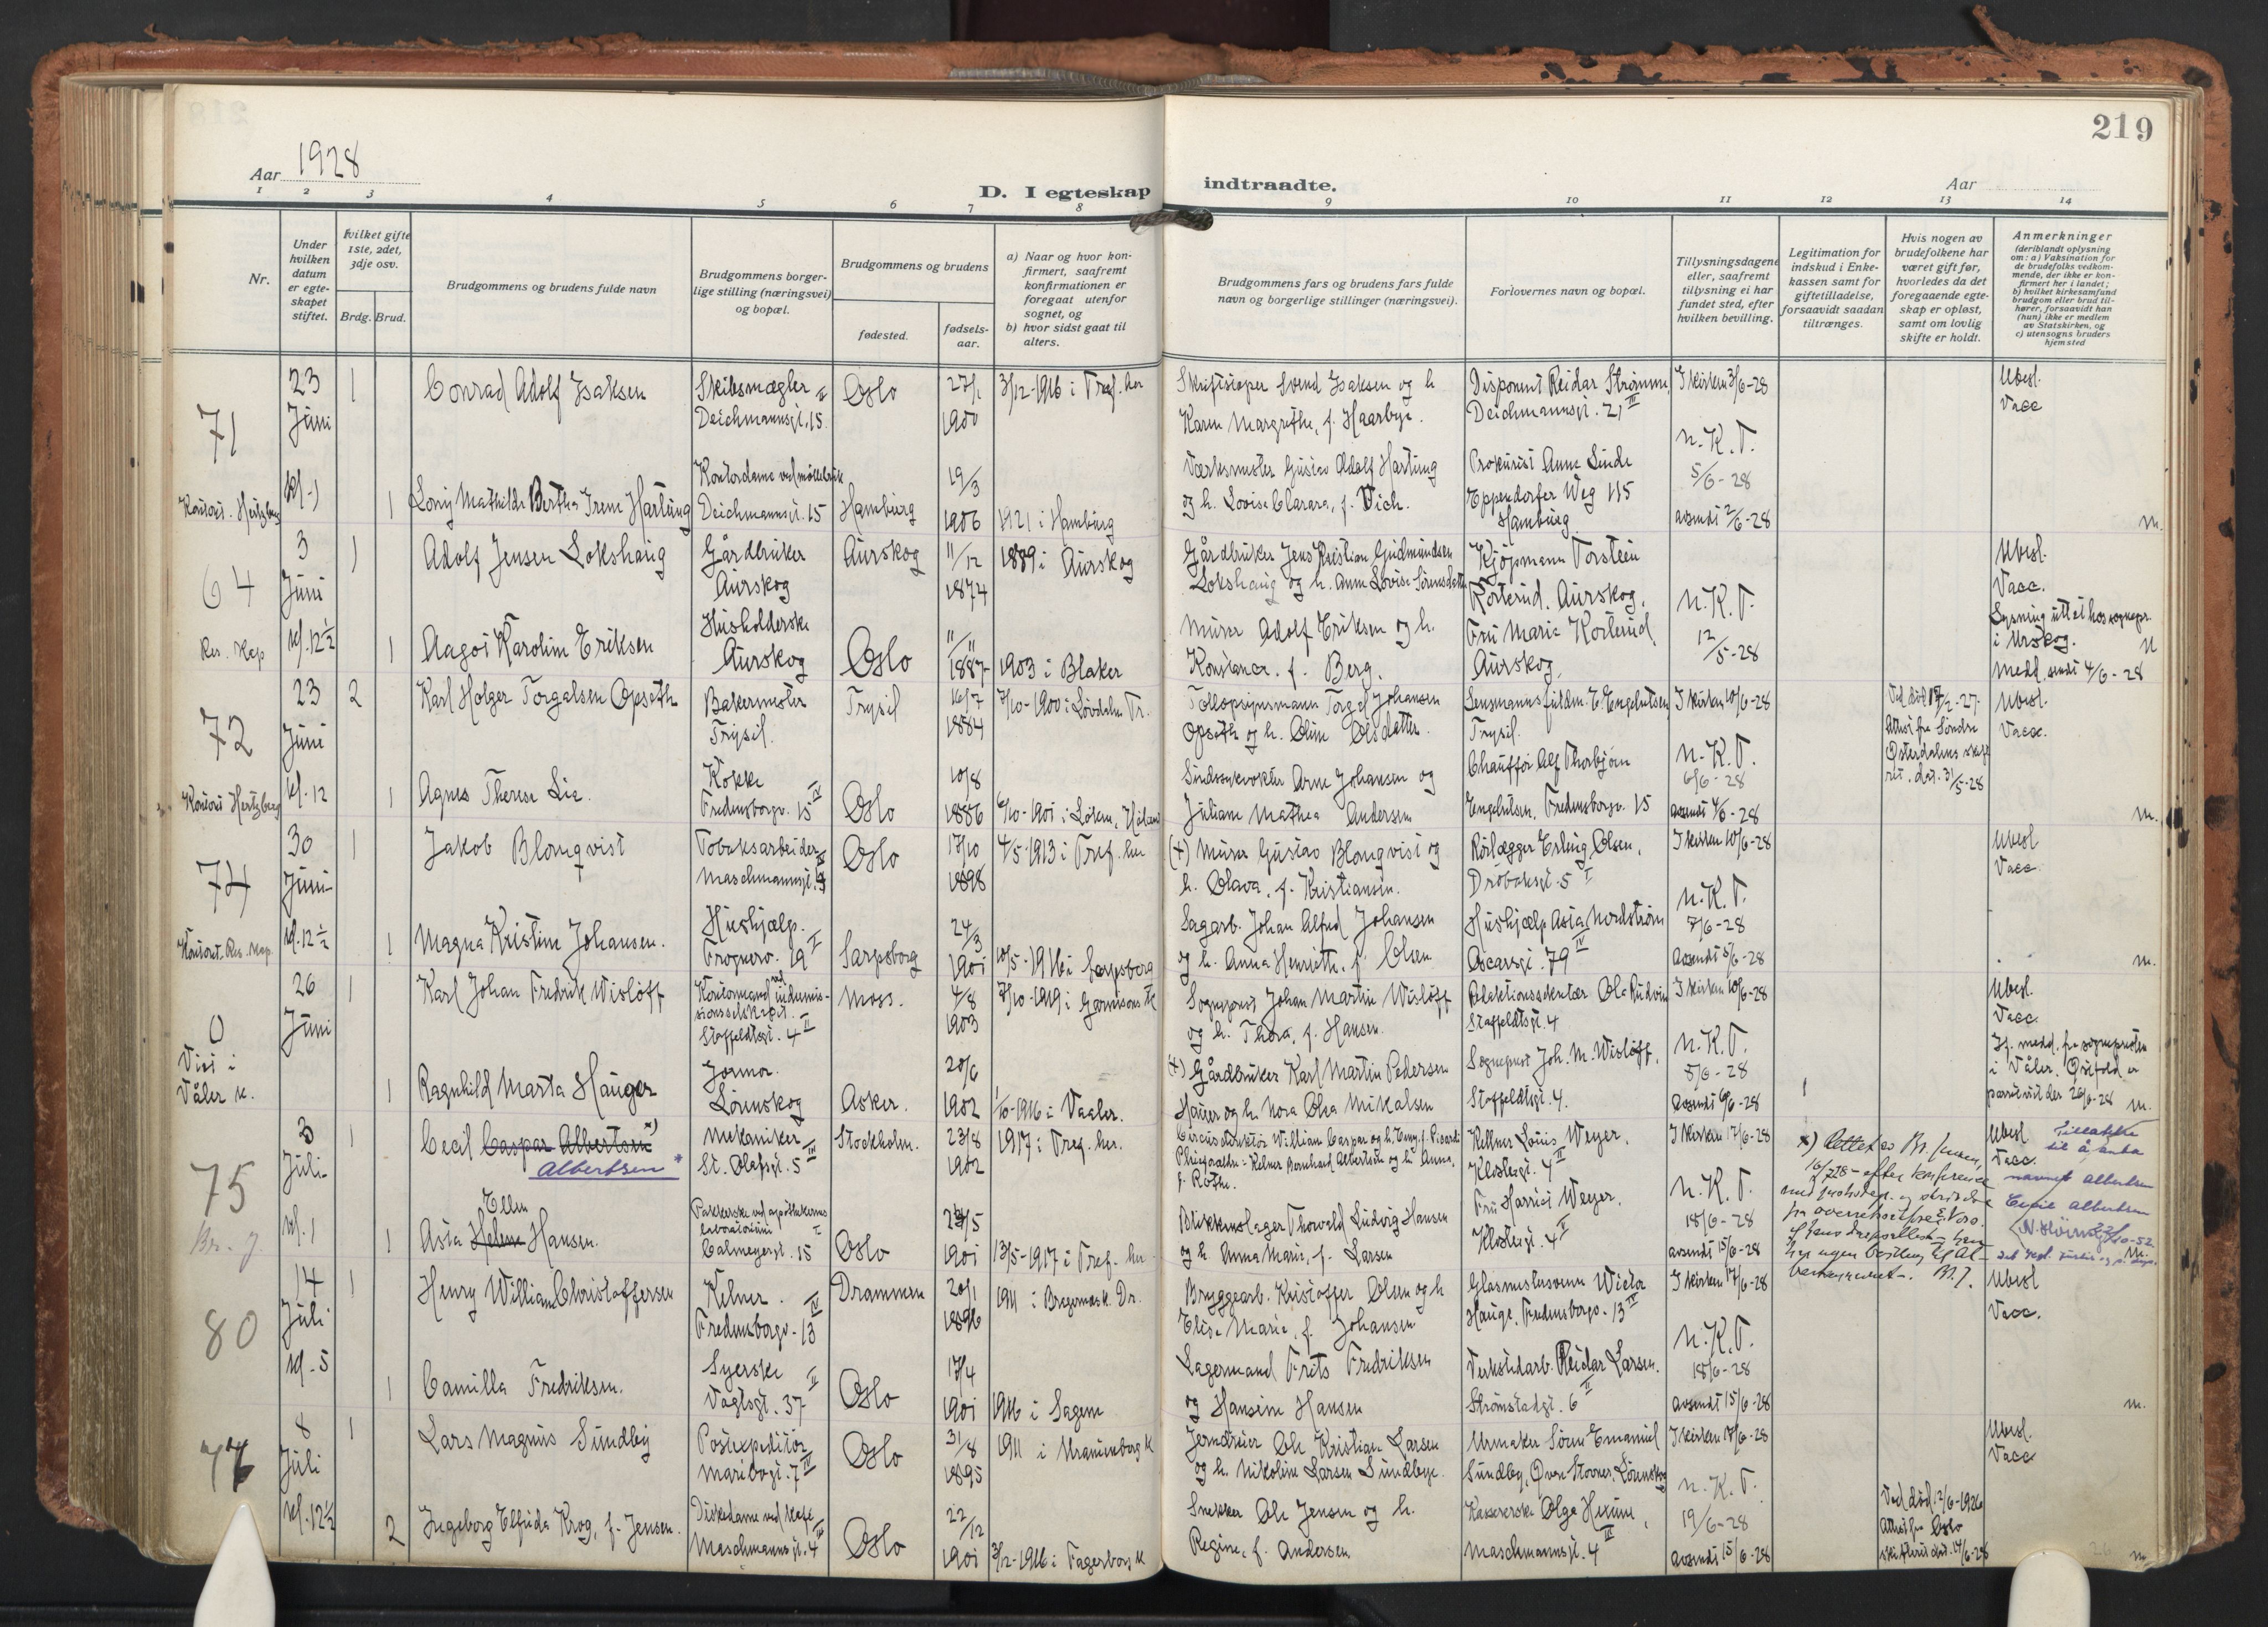 219
Aar 1928
D. I egteskap indtraadte.
Aar
1 2 3 4 5 6 7 8 9 10 11 12 13 14
Nr.
Under hvilken datum er egteskapet stiftet.
Hvilket gifte 1ste, 2det, 3dje osv.
Brdg. Brud.
Brudgommens og brudens fulde navn
Brudgommens borgerlige stilling (næringsvei) og bopæl.
Brudgommens og brudens
fødested.
fødselsaar.
a) Naar og hvor konfirmert, saafremt konfirmationen er foregaat utenfor sognet, og
b) hvor sidst gaat til alters.
Brudgommens fars og brudens fars fulde navn og borgerlige stillinger (næringsvei).
Forlovernes navn og bopæl.
Tillysningsdagene eller, saafremt tillysning ei har fundet sted, efter hvilken bevilling.
Legitimation for indskud i Enkekassen samt for giftetilladelse, forsaavidt saadan tiltrænges.
Hvis nogen av brudefolkene har været gift før, hvorledes da det foregaaende egteskap er opløst, samt om lovlig skifte er holdt.
Anmerkninger
(deriblandt oplysning om: a) Vaksination for de brudefolks vedkommende, der ikke er konfirmert her i landet; b) hvilket kirkesamfund brudgom eller brud tilhører, forsaavidt han (hun) ikke er medlem av Statskirken, og c) utensogns bruders hjemsted
71
23 Juni
1
Conrad Adolf Isaksen
Skibsmægler Deichmannsgt. 15 II
Oslo
27/1 1900
3/12-1916 i Tref. her
Svend Isaksen og h. Karen Margrethe, f. Haarbye.
Disponent Reidar Strømme, Deichmannsgt. 21 III
I kirken 3/6-28
N.K.T. 5/6-28
avsendt 2/6-28
Ubesl.
Vacc
Kontoret. Hertzberg
kl. 1
1
Lony Mathilde Bertha Irene Hartung
Deichmannsgt. 15
Hamburg
19/3 1906
1921 i Hamburg
Værksmester Gustav Adolf Hartung
og h. Lovise Clarara, f. Vich.
Prokurist Anne Linde
Eppendorfer Weg 115
Hamburg
m.
64
3 Juni
1
Adolf Jensen Lokshaug
Gårdbruker Aurskog
Aurskog
11/12 1874
1889 i Aurskog
Gårdbruker Jens Kristian Gudmundsen
Lokshaug og h. Anne Lovise Sørensdatter
Kjøpmann Torstein
Kosterud, Aurskog.
N.K.T. 12/5-28
Ubesl.
Vacc.
Lysning uttat hos sognepr. i Urskog.
Medd. sendt 4/6-28
Res. Kap
kl. 12 1/2
1
Aagot Karoline Eriksen
Husholderske Aurskog
Oslo
11/11 1887
1903 i Blaker
Murer Adolf Eriksen og h.
Konstance, f. Berg.
Fru Marie Kosterud
Aurskog,
72
23 Juni
2
Karl Holger Torgalsen Opseth
Bakermester Trysil.
Trysil
16/7 1884
7/10-1900 i Lövdalen Tr.
Tollopsynsmann Torgal Johansen
Opseth og h. Oline Olsdatter.
Lensmannsfuldm. E. Engelutsen
Trysil.
I kirken 10/6-28
N.K.T. 6/6-28
avsendt 4/6-28
Ved død 17/2-27.
Attest fra Søndre Østerdalens skifteret. dat. 31/5-28
Ubesl.
Vacc.
Kontoret Hertzberg
kl. 12
1
Agnes Therese Lie.
Kokke Fredensborgv. 15 IV
Oslo
10/8 1886
Sindssykevokter Arne Johansen og
Juliane Mathea Andersen
Chauffør Alf Thorbjørn
Engelutsen, Fredensborgv. 15
m.
74
30 Juni
1
Jakob Blomqvist
Tobaksarbeider Maschmannsgt.
Oslo
17/10 1898
4/5-1913 i Tref. her
(+) Murer Gustav Blomqvist og
h. Olava, f. Kristiansen.
Rørlægger Erling Olsen,
Drøbaksgt. 5 I
I kirken 10/6-28
N.K.T. 7/6-28
avsendt 5/6-28
Ubesl
Vacc
Kontoret. Res. Kap.
kl. 12 1/2
1
Magna Kristine Johansen.
Hushjælp. Frognerv. 19 I
Sarpsborg
24/3 1901
10/5-1916 i Sarpsborg
Sagarb. Johan Alfred Johansen
og h. Anna Henriette, f. Olsen
Hushjælp Asta Nordstrøm
Oscarsgt. 79 IV
m.
0
26 Juni
1
Karl Johan Fredrik Wisløff
Kontormand ved indremissionsselskapet. Stoffeldtsgt. 4 II
Moss.
4/8 1903
7/10-1919 i Garnisons K
Sogneprest Johan Martin Wisløff
og h. Thora, f. Hansen.
Redaktionssekretær Ola Rudvin
Staffeldtsgt. 4
I kirken 10/6-28
N.K.T. 5/6-28
Ubesl.
Vacc.
If. medd. fra sognepresten i Våler. Østfold er parret viet der 26/6-28
Viet i Våler k.
1
Ragnhild Marta Hauger
Jormor. Lørenskog
Asker.
20/6 1902
1/10-1916 i Vaaler.
(+) Gårdbruker Karl Martin Pedersen
Hauer og h. Nora Olea Mikalsen
Sogneprest Joh. M. Wisløff,
Staffeldtsgt. 4.
m.
75
3 Juli
1
Cecil Caspar Albertsen x)
Albertsen *
Mekaniker St. Olafsgt. 5 III
Stockholm.
23/8 1902
1917 i Tref. her.
Circusdirektør William Caspar og h. Emy, f. Picardi
Pleieforældre: Kelner Bernhard Albertsen og h. Anna, f. Rothe.
Kellner Louis Weyer,
Klostergt. 4 II
I kirken 17/6-28
N.K.T. 18/6-28
avsendt 15/6-28
x) Rettet av Br. Jensen, 16/7 28 - efter konferense
Ubesl
Vacc.
Tillatelse til å anta navnet Albertsen
22/10-52
kl. 1
1
Asta Helene Hansen.
Ellen
Pakkerske ved apothekernes laboratorium Calmeyersgt. 15 I
Oslo
1901
13/5-1917 i Tref. her
Blikkenslager Thorvald Ludvig Hansen
og h. Anna Marie, f. Larsen
Fru Harriet Weyer,
Klostergt. 4 II
80
14 Juli
1
Henry William Christoffersen
Kelner. Fredensborgv. 13 IV
Drammen
20/1 1896
1911 i Bragernes k. Dr.
Bryggearb. Kristoffer Olsen og h
Elise Marie, f. Johansen
Glasmestersvenn Victor
Hauge, Fredensborgv. 13 IV
I kirken 17/6-28
N.K.T. 18/6-28
avsendt 15/6-28
Ubesl
Vacc.
kl. 5
1
Camilla Fredriksen.
Syerske Vogtsgt. 37 II
Oslo
17/4 1901
1916 i Sagene
Lagermand Frits Fredriksen
og Hansine Hansen
Verkstedarb. Reidar Larsen.
Strømstadgt. 6 II
m.
77
8 Juli
1
Lars Magnus Sundby
Postexpeditør Maribogt. 7 IV
Oslo
31/8 1895
1911 i Uranienborg K
Jerndreier Ole Kristian Larsen
og h. Nikoline Larsen Sundbye.
Urmaker Søren Emanuel
Sundby, Øvre Stovner, Lørenskog
I kirken 17/6-28
N.K.T. 19/6-28
avsendt 15/6-28
Ubesl.
Vacc
kl. 12 1/2
2
Ingeborg Elfrida Krog, f. Jensen.
Diskedame ved kafe Maschmannsgt. 4 III
Oslo
22/12 1901
3/12-1916 i Fagerborg K
Snekker Ole Jensen og h.
Regine, f. Andersen
Kassererske Olga Hexum,
Maschmannsgt. 4 III
Ved død 12/6-1926
Attest fra Oslo skifteret dat. 14/6-28
m